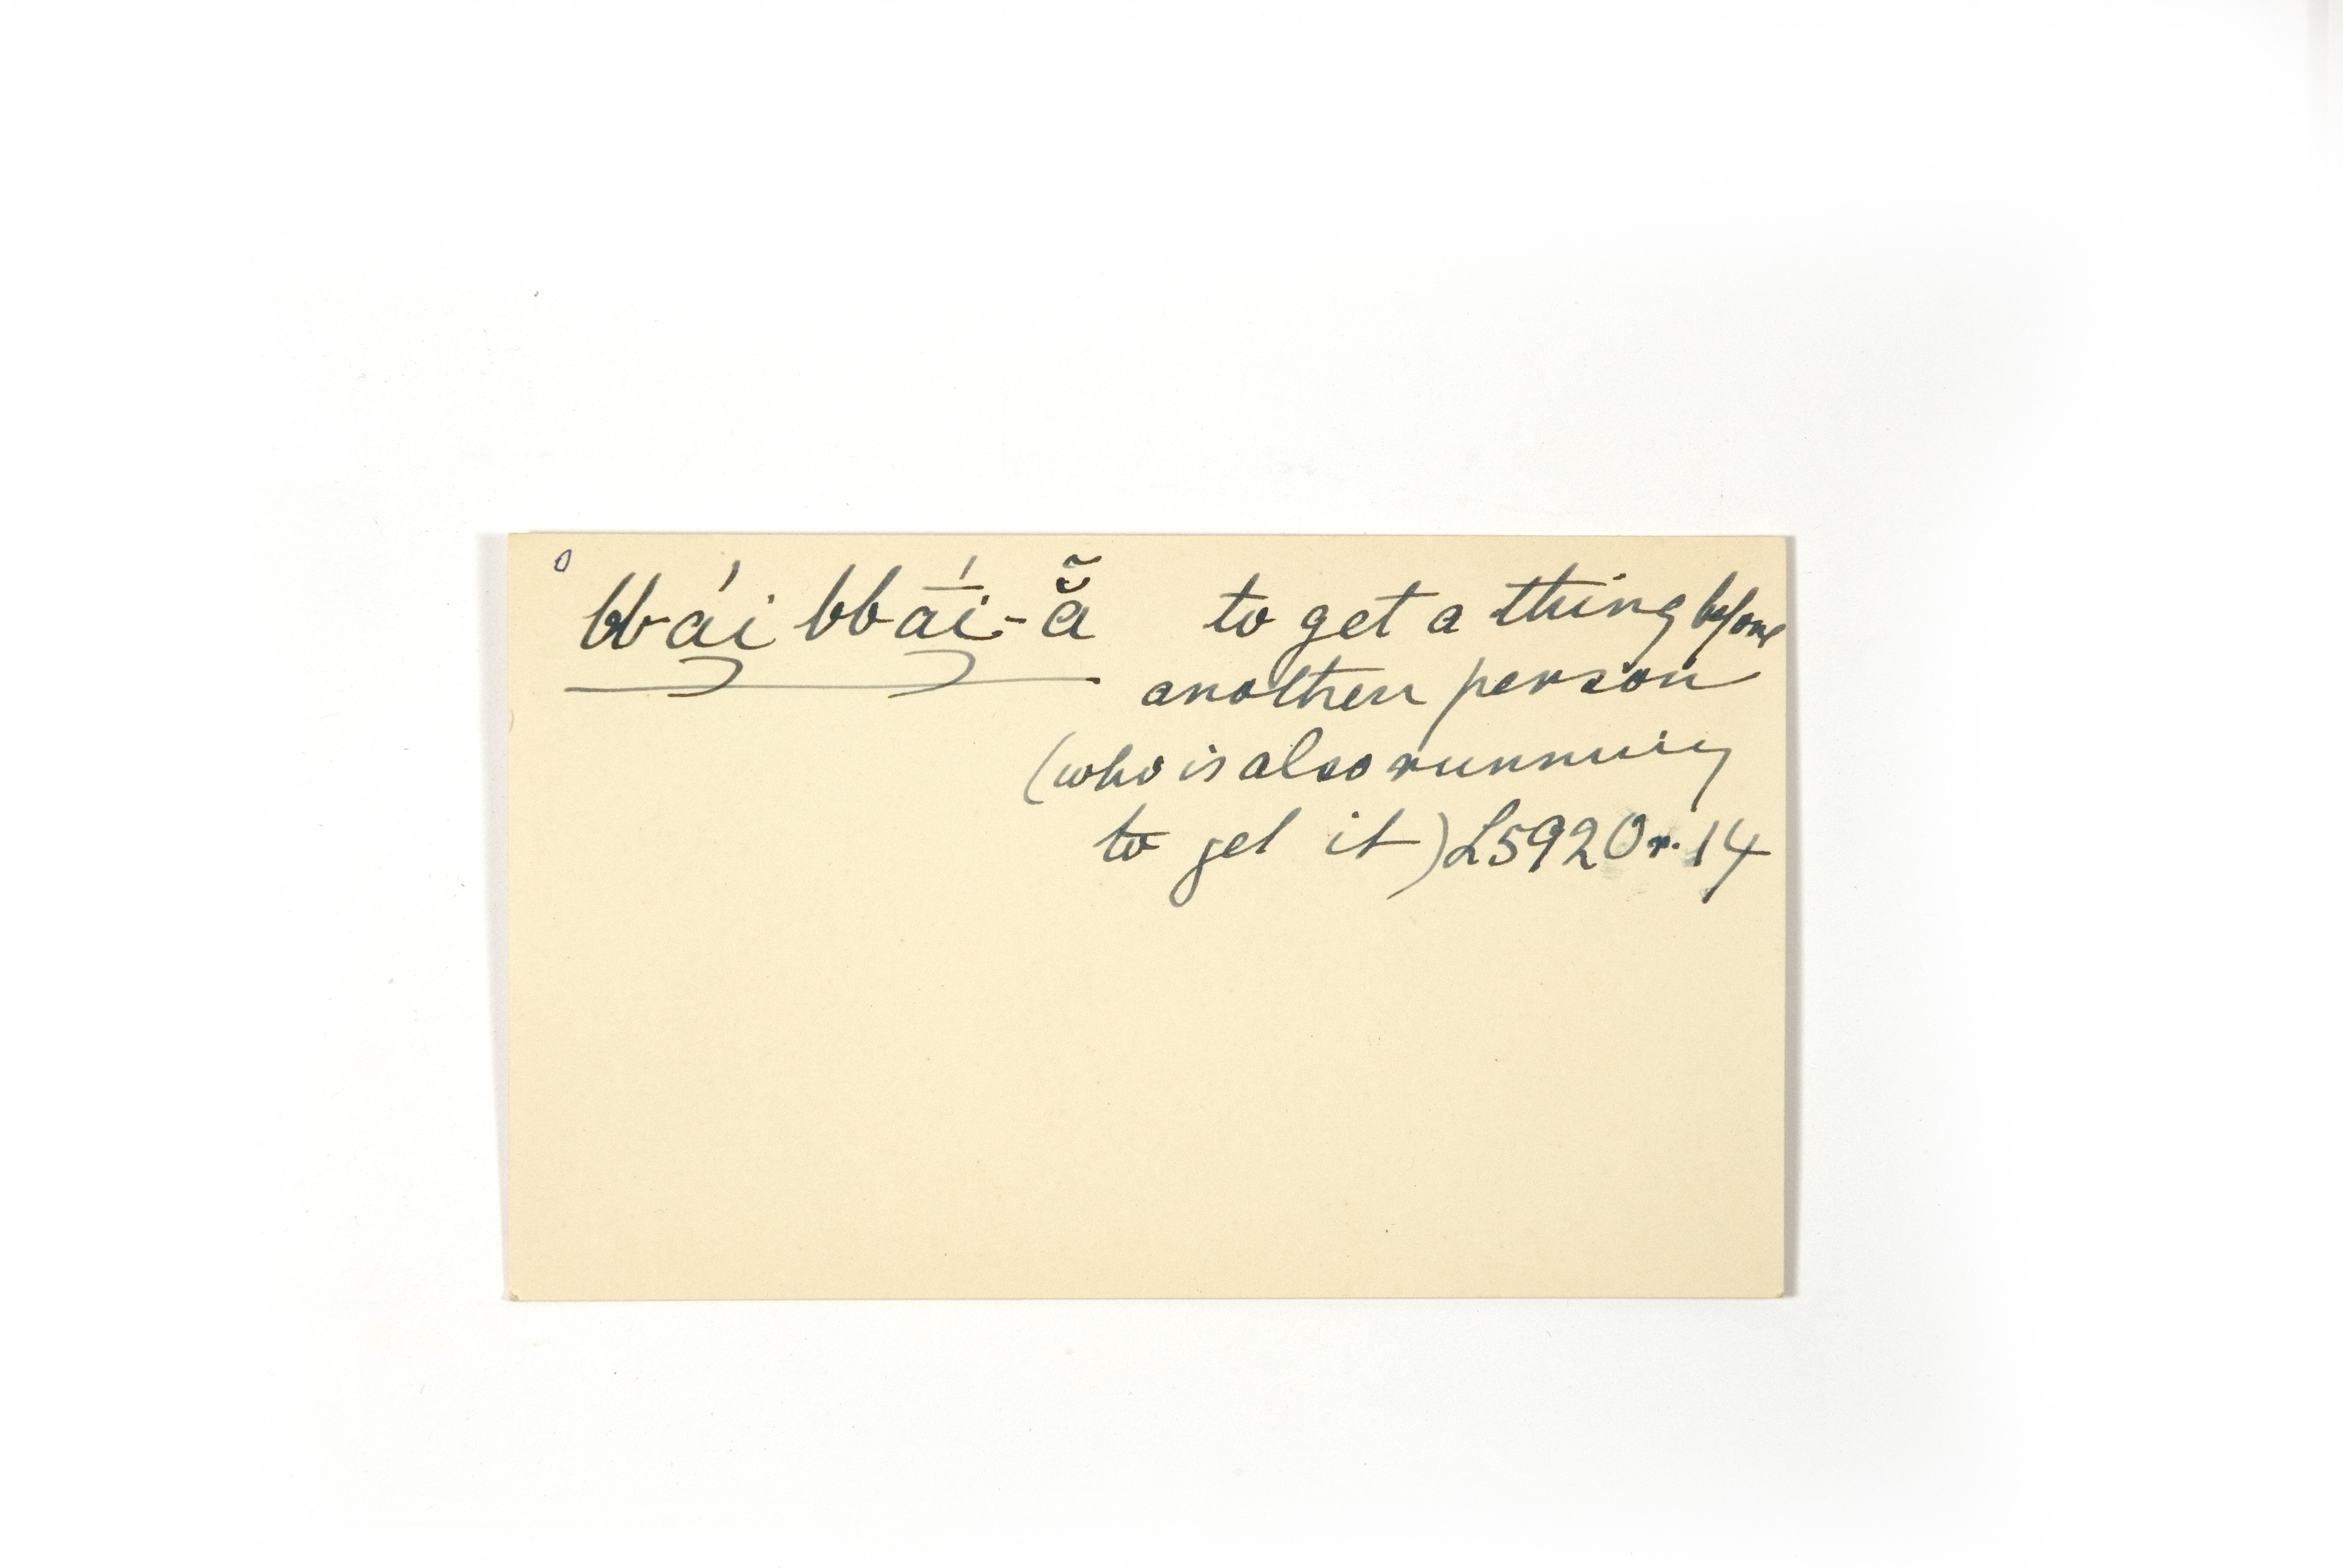 0 bbái bbā́i-ã̆ to get a thing before
another person
(who is also running
to get it) L5920r.14